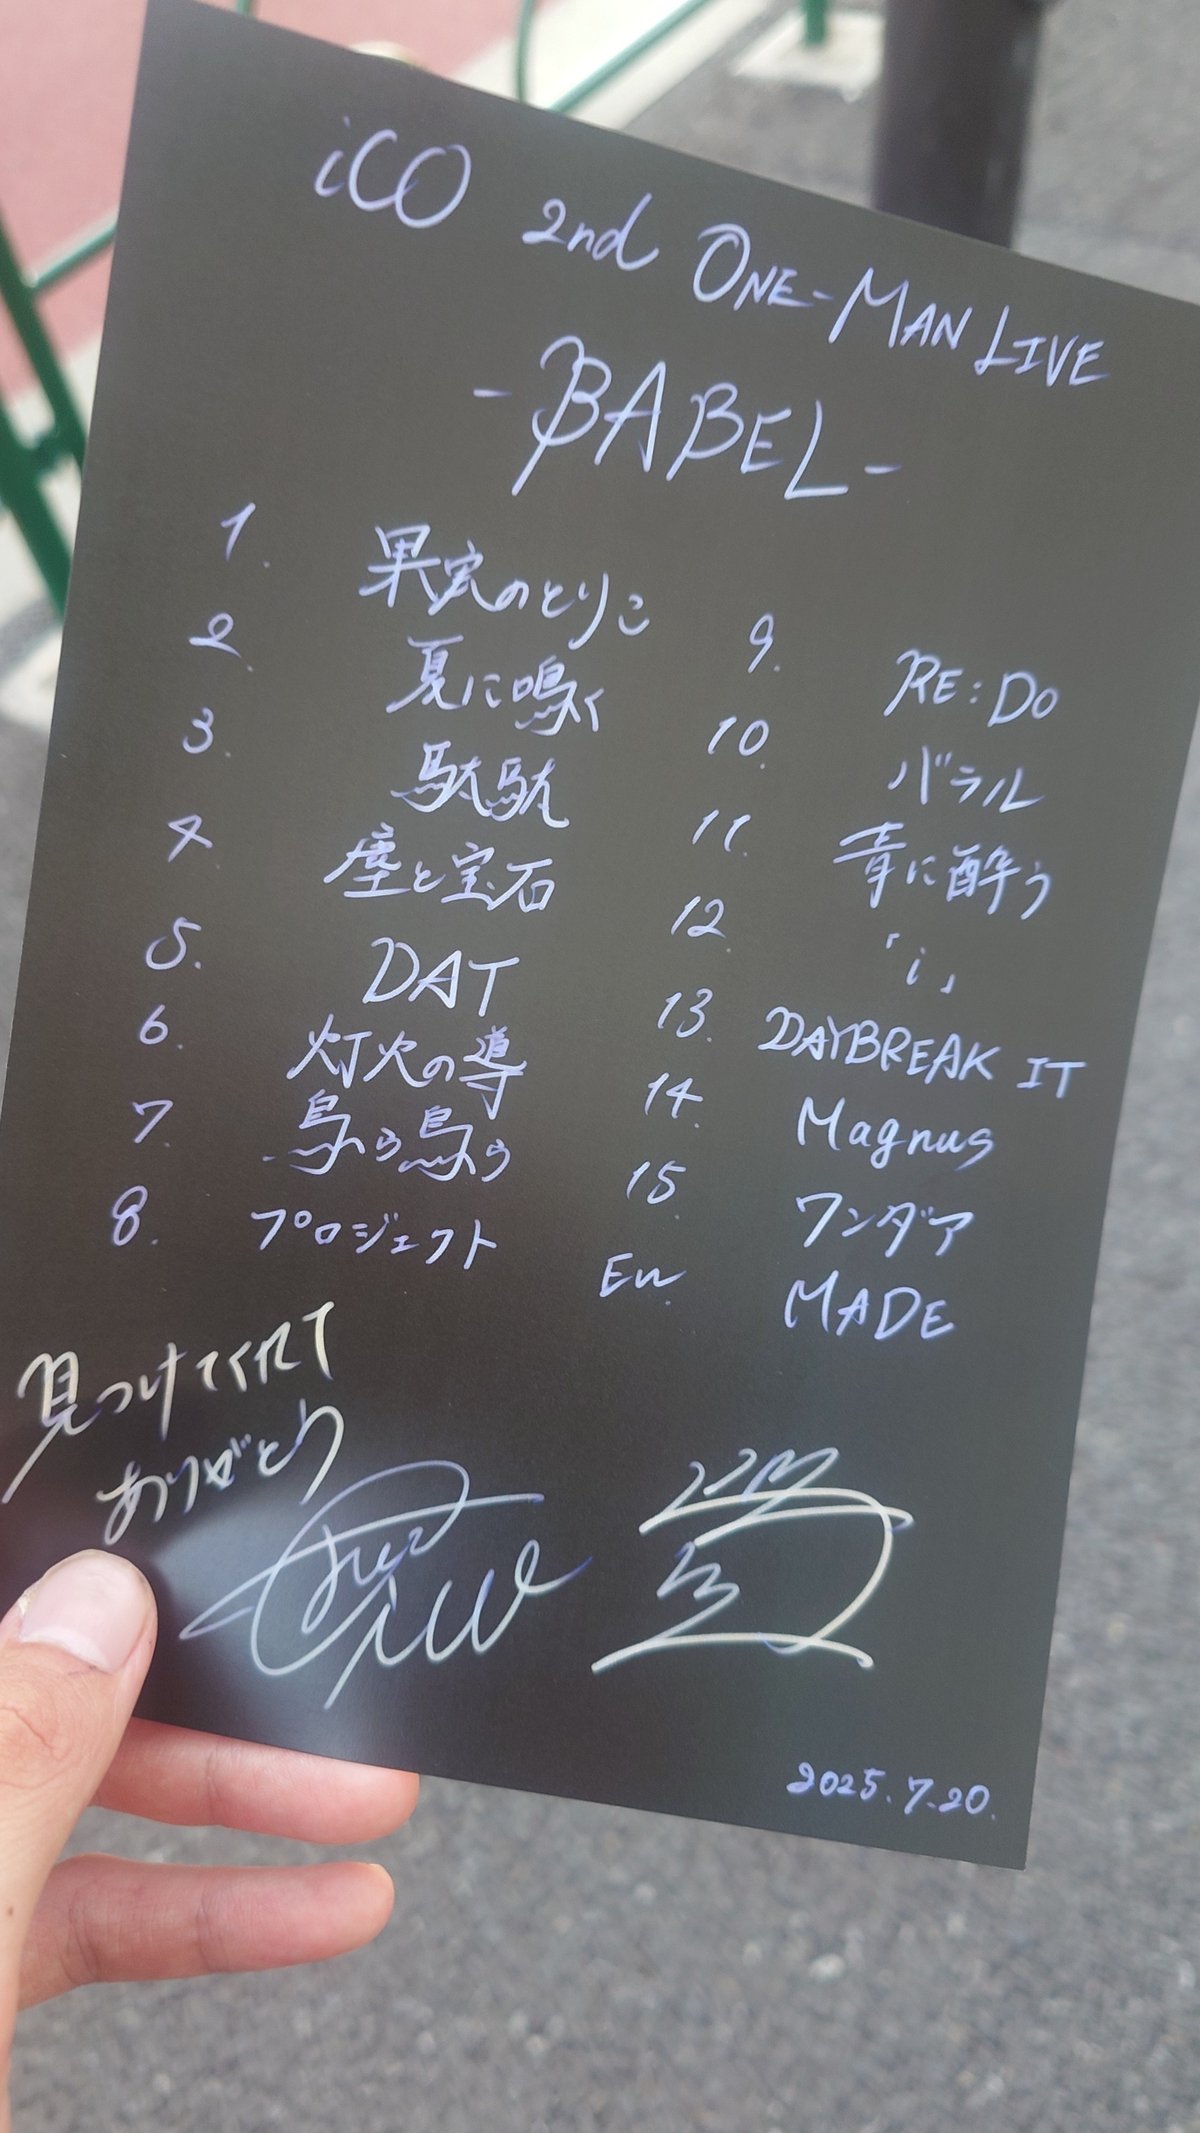 iCO 2nd ONE-MAN LIVE
-BABEL-
1. 果実のとりこ
2. 夏に鳴く
3. 駄駄
4. 塵と宝石
5. DAT
6. 灯火の導
7. 鳥ゥ鳥ゥ
8. プロジェクト
9. RE:DO
10. バラル
11. 青に酔う
12. 「i」
13. DAYBREAK IT
14. Magnus
15. ワンダア
En. MADE
見つけてくれて
ありがとう
2025.7.20.